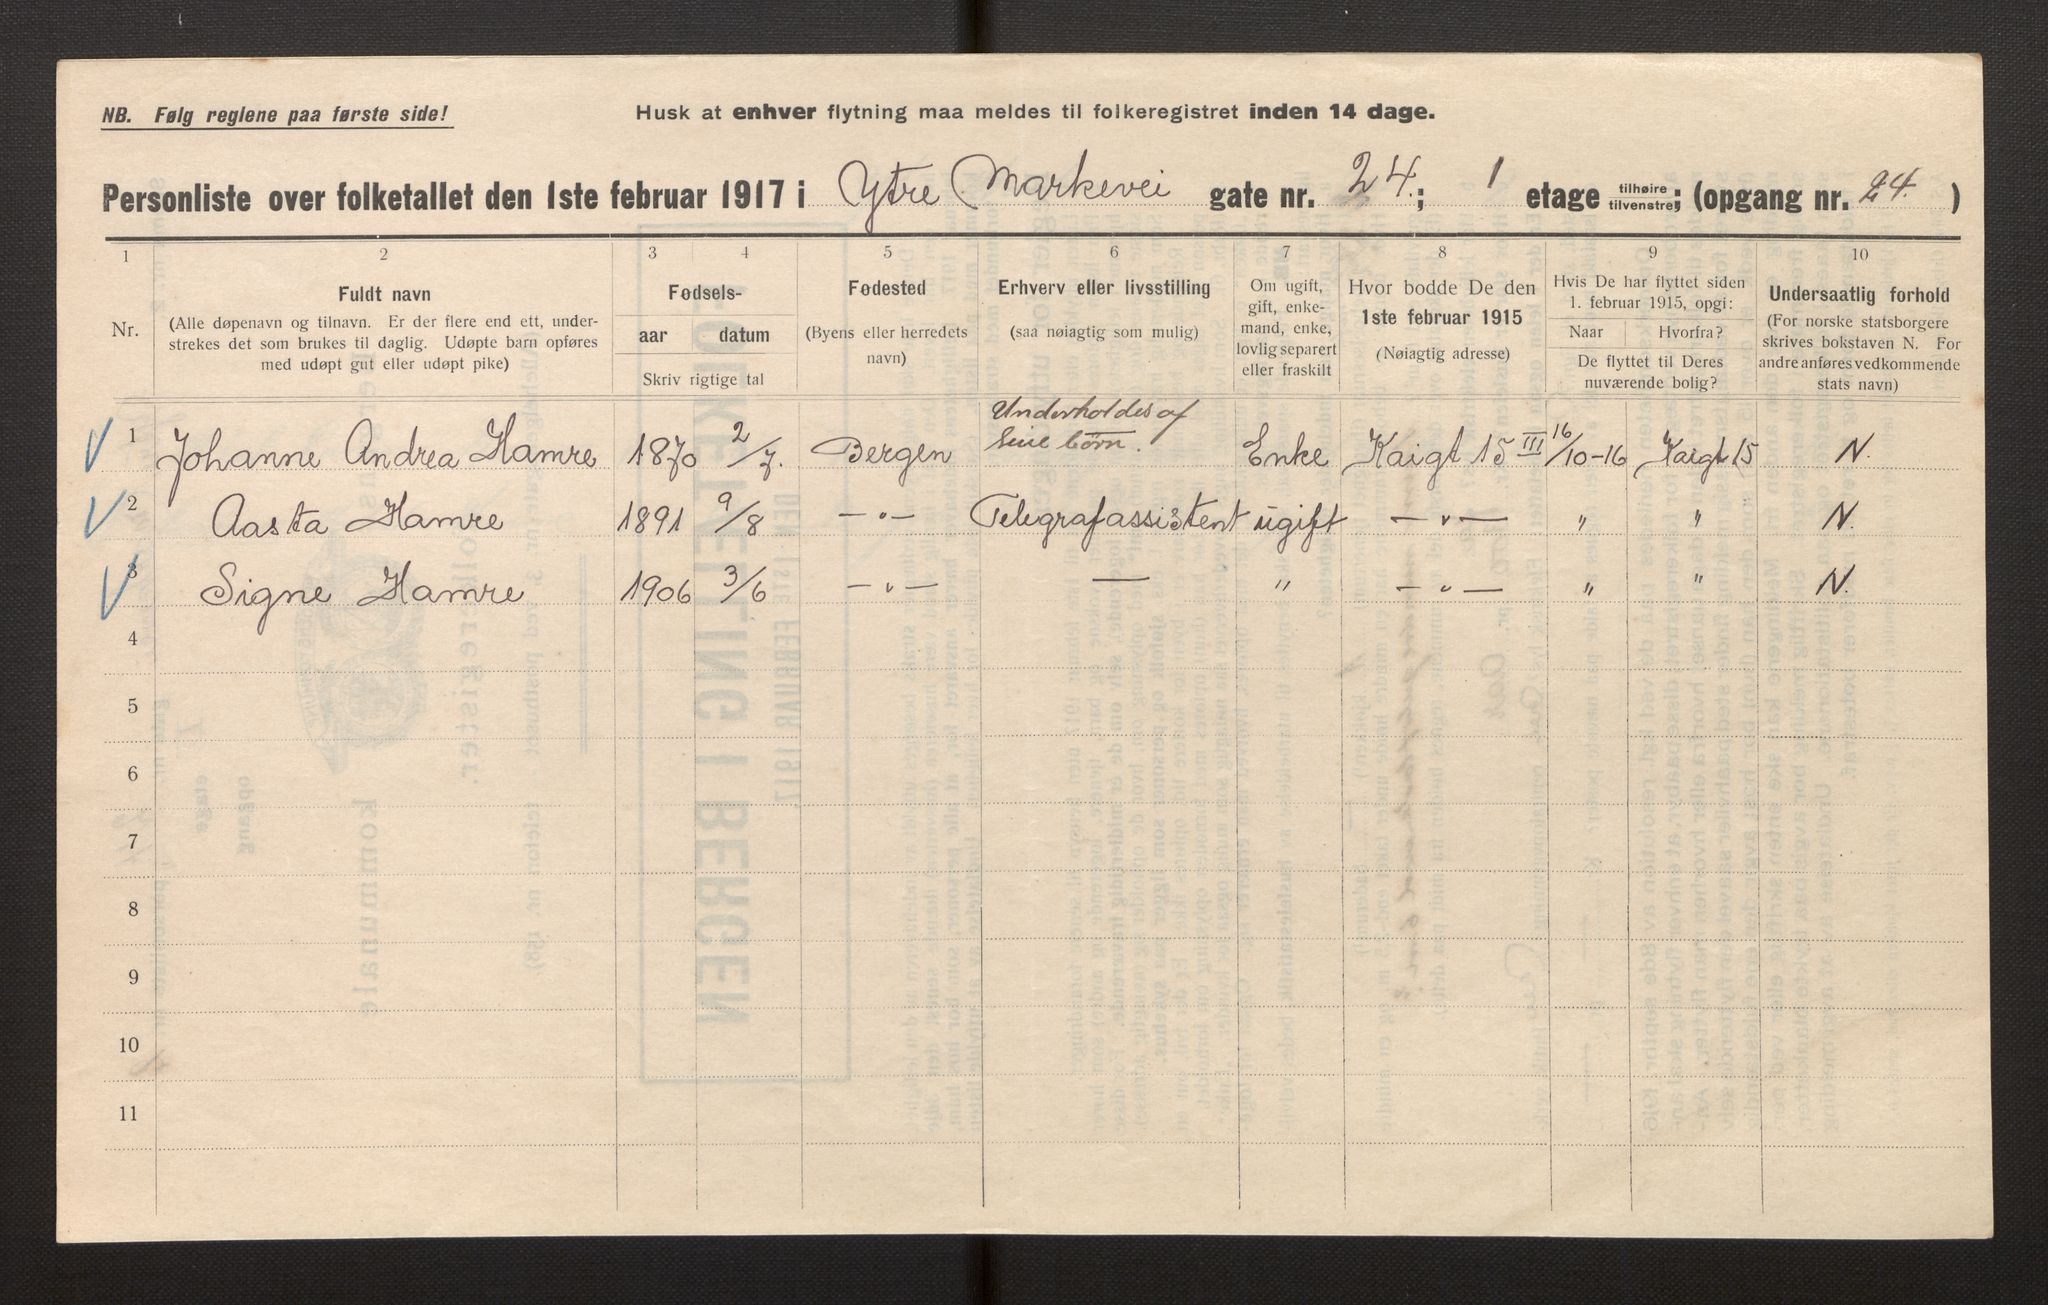 NB. Følg reglene paa første side! Husk at enhver flytning maa meldes til folkeregistret inden 14 dage.
Personliste over folketallet den 1ste februar 1917 i Ytre Markevei gate nr. 24.; 1 etage tilhøire tilvenstre; (opgang nr. 24. )
1 2 3 4 5 6 7 8 9 10
Nr.
Fuldt navn
(Alle døpenavn og tilnavn. Er der flere end ett, under-
strekes det som brukes til daglig. Udøpte barn opføres
med udøpt gut eller udøpt pike)
Fødsels-
aar datum
Skriv rigtige tal
Fødested
(Byens eller herredets
navn)
Erhverv eller livsstilling
(saa nøiagtig som mulig)
Om ugift,
gift, enke-
mand, enke,
lovlig separert
eller fraskilt
Hvor bodde De den
1ste februar 1915
(Nøiagtig adresse)
Hvis De har flyttet siden
1. februar 1915, opgi:
Naar Hvorfra?
De flyttet til Deres
nuværende bolig?
Undersaatlig forhold
(For norske statsborgere
skrives bokstaven N. For
andre anføres vedkommende
stats navn)
Underholdes af
sine børn.
1 Johanne Andrea Hamre 1870 2/7. Bergen Enke Kaigt 15 III 16/10-16 Kaigt 15 N.
2 Aasta Hamre 1891 9/8 — " — Telegrafassistent ugift — " — " " N.
3 Signe Hamre 1906 3/6 — " — — " — " — " " N.
4
5
6
7
8
9
10
11